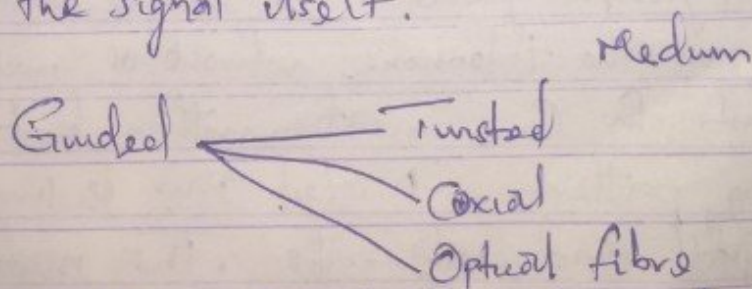 the signal itself.
Medium
Guided
Twisted
Coxial
Optical fibre